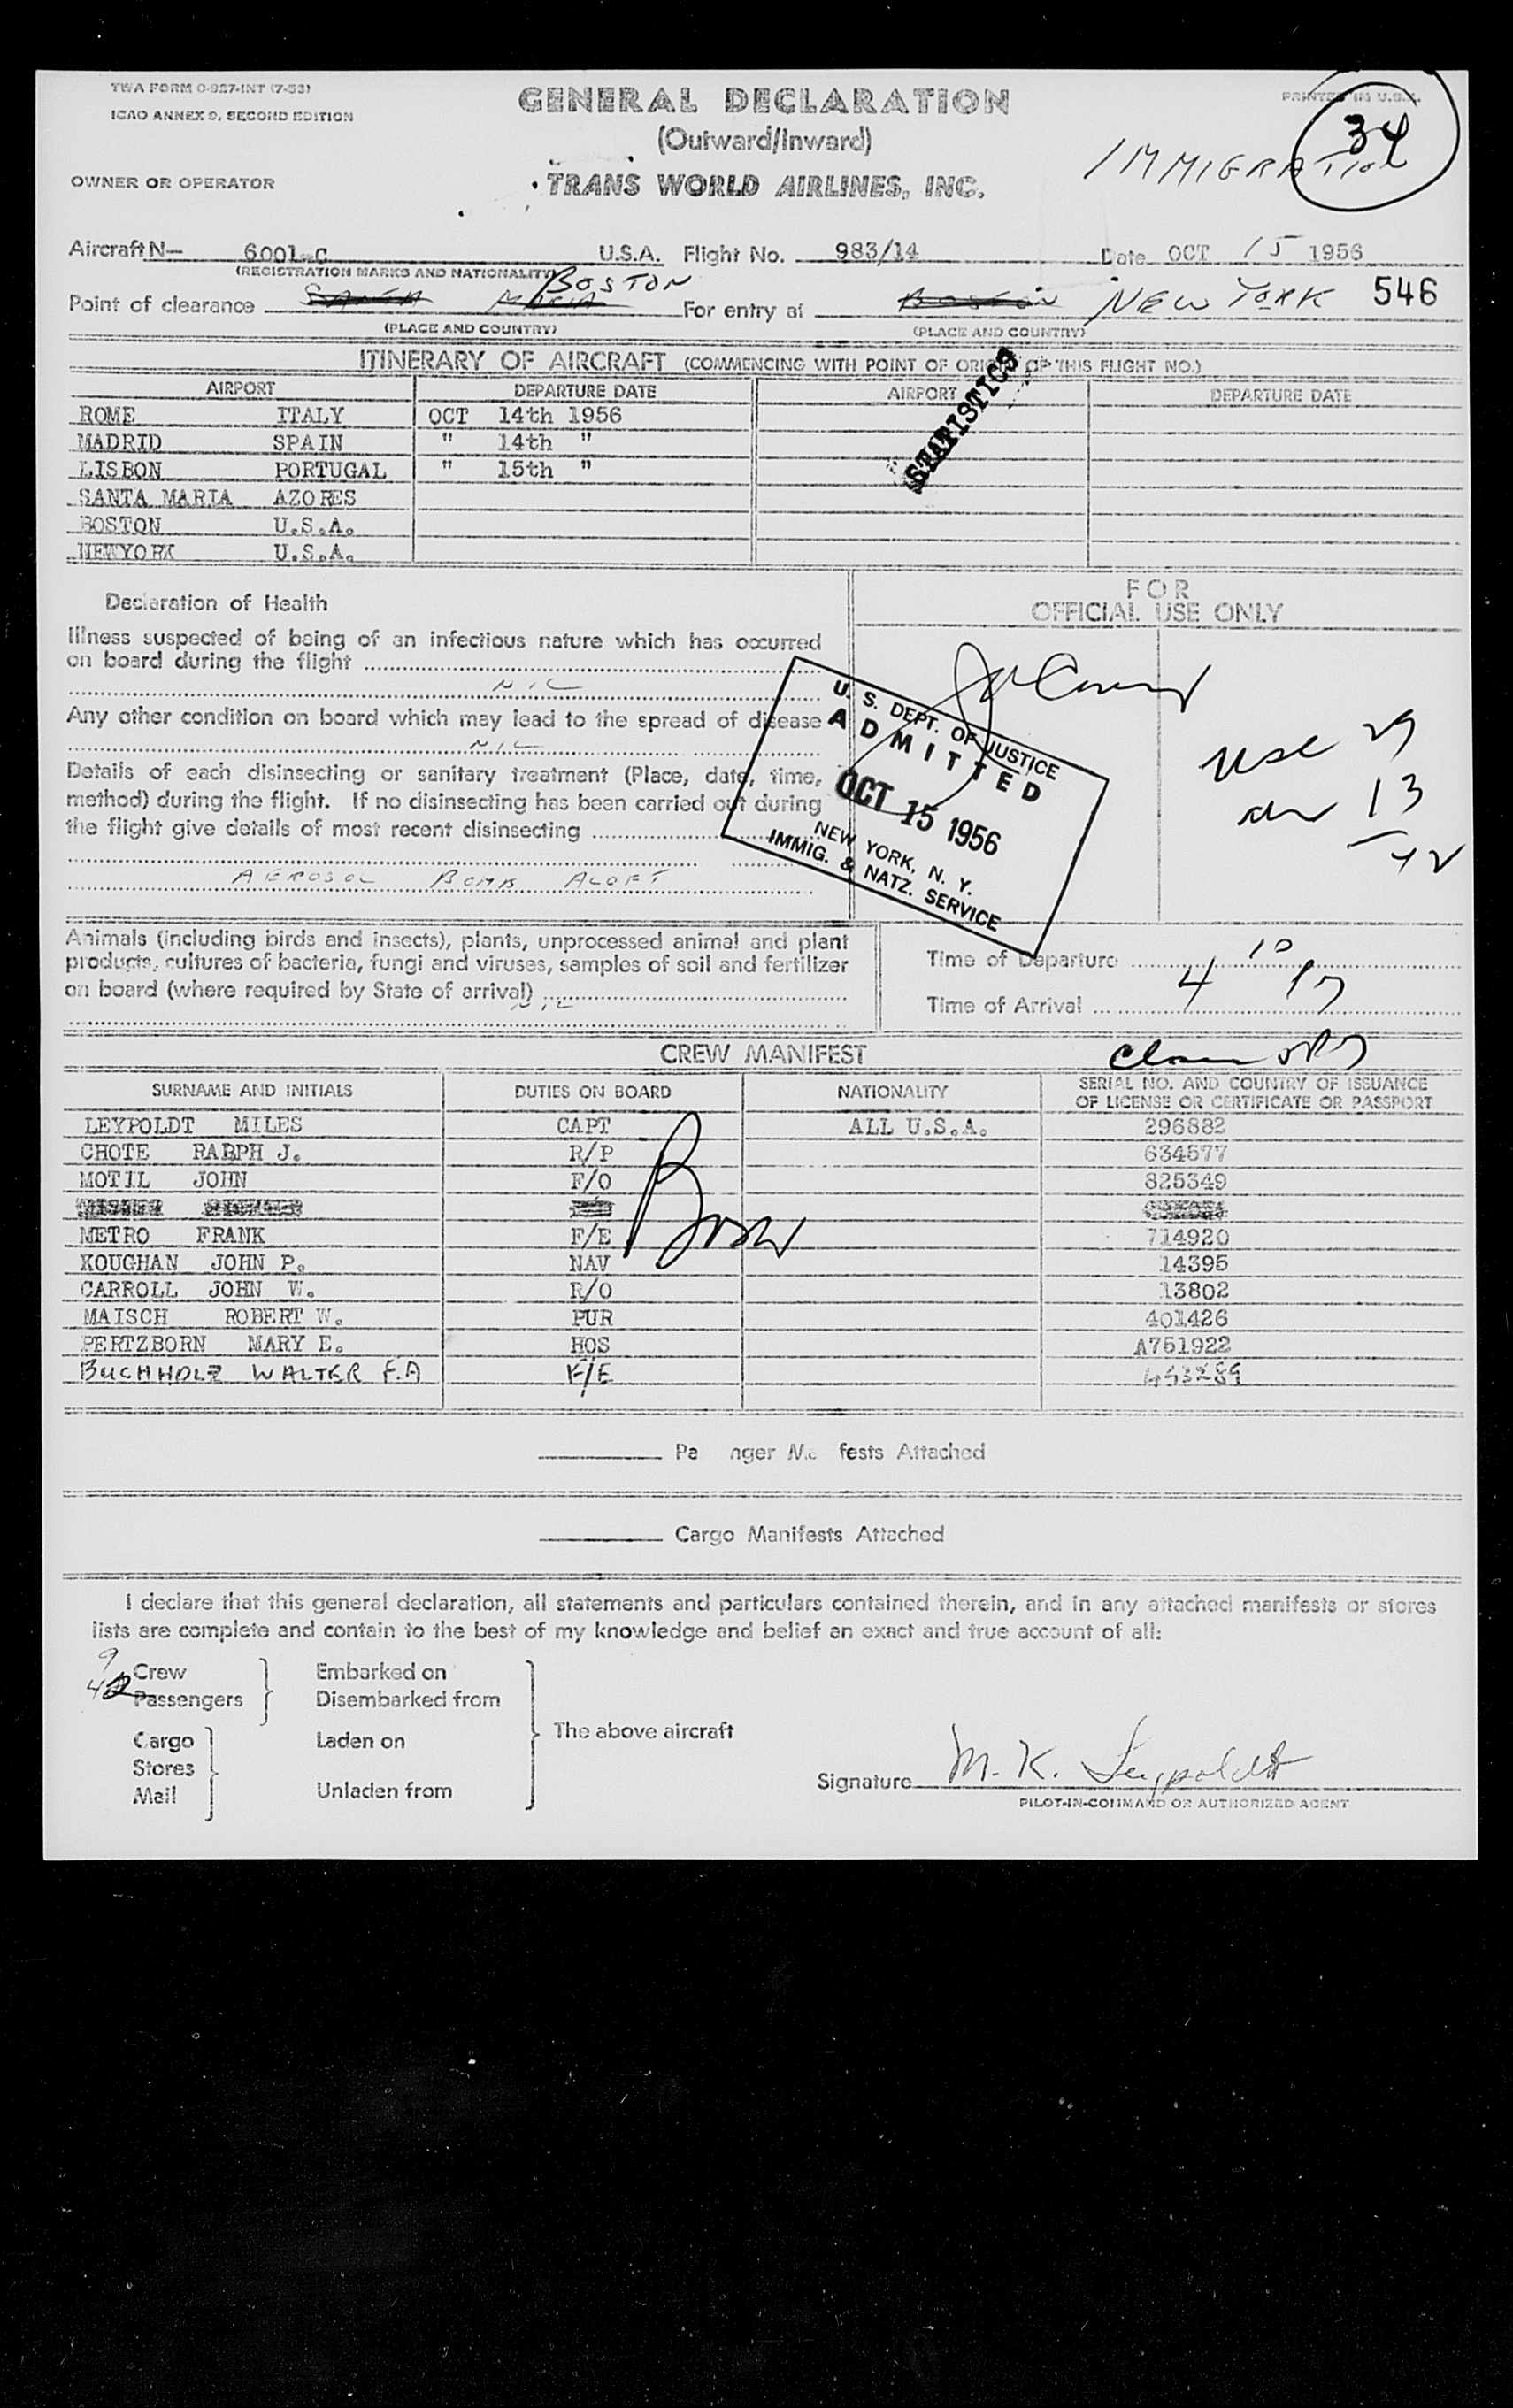 TWA FORM O-927-INT (7-53)
ICAO ANNEX 9, SECOND EDITION
GENERAL DECLARATION
(Outward/Inward)
PRINTED IN U.S.A.
34
IMMIGRATION
OWNER OR OPERATOR
TRANS WORLD AIRLINES, INC.
Aircraft N— 6001-C U.S.A. Flight No. 983/14 Date OCT 15 1956
(REGISTRATION MARKS AND NATIONALITY)
BOSTON
Point of clearance SANTA MARIA For entry at BOSTON NEW YORK 546
(PLACE AND COUNTRY) (PLACE AND COUNTRY)
ITINERARY OF AIRCRAFT (COMMENCING WITH POINT OF ORIGIN OF THIS FLIGHT NO.)
AIRPORT DEPARTURE DATE AIRPORT DEPARTURE DATE
STATISTICS
ROME ITALY OCT 14th 1956
MADRID SPAIN " 14th "
LISBON PORTUGAL " 15th "
SANTA MARIA AZORES
BOSTON U.S.A.
NEWYORK U.S.A.
Declaration of Health
FOR
OFFICIAL USE ONLY
Illness suspected of being of an infectious nature which has occurred
on board during the flight
NIL
Any other condition on board which may lead to the spread of disease
NIL
Details of each disinsecting or sanitary treatment (Place, date, time,
method) during the flight. If no disinsecting has been carried out during
the flight give details of most recent disinsecting
AEROSOL BOMB ALOFT
U. S. DEPT. OF JUSTICE
ADMITTED
OCT 15 1956
NEW YORK, N. Y.
IMMIG. & NATZ. SERVICE
usc 29
13
42
Animals (including birds and insects), plants, unprocessed animal and plant
products, cultures of bacteria, fungi and viruses, samples of soil and fertilizer
on board (where required by State of arrival)
NIL
Time of Departure
Time of Arrival
CREW MANIFEST
SURNAME AND INITIALS DUTIES ON BOARD NATIONALITY SERIAL NO. AND COUNTRY OF ISSUANCE
OF LICENSE OR CERTIFICATE OR PASSPORT
LEYPOLDT MILES CAPT ALL U.S.A. 296882
CHOTE RALPH J. R/P 634577
MOTIL JOHN F/O 825349
METRO FRANK F/E 714920
KOUGHAN JOHN P. NAV 14395
CARROLL JOHN W. R/O 13802
MAISCH ROBERT W. PUR 401426
PERTZBORN MARY E. HOS A751922
BUCHHOLZ WALTER F.A F/E 443289
Pa nger Ma fests Attached
Cargo Manifests Attached
I declare that this general declaration, all statements and particulars contained therein, and in any attached manifests or stores
lists are complete and contain to the best of my knowledge and belief an exact and true account of all:
9 Crew Embarked on
42 Passengers Disembarked from
The above aircraft
Cargo Laden on
Stores
Mail Unladen from
Signature M. K. Leypoldt
PILOT-IN-COMMAND OR AUTHORIZED AGENT